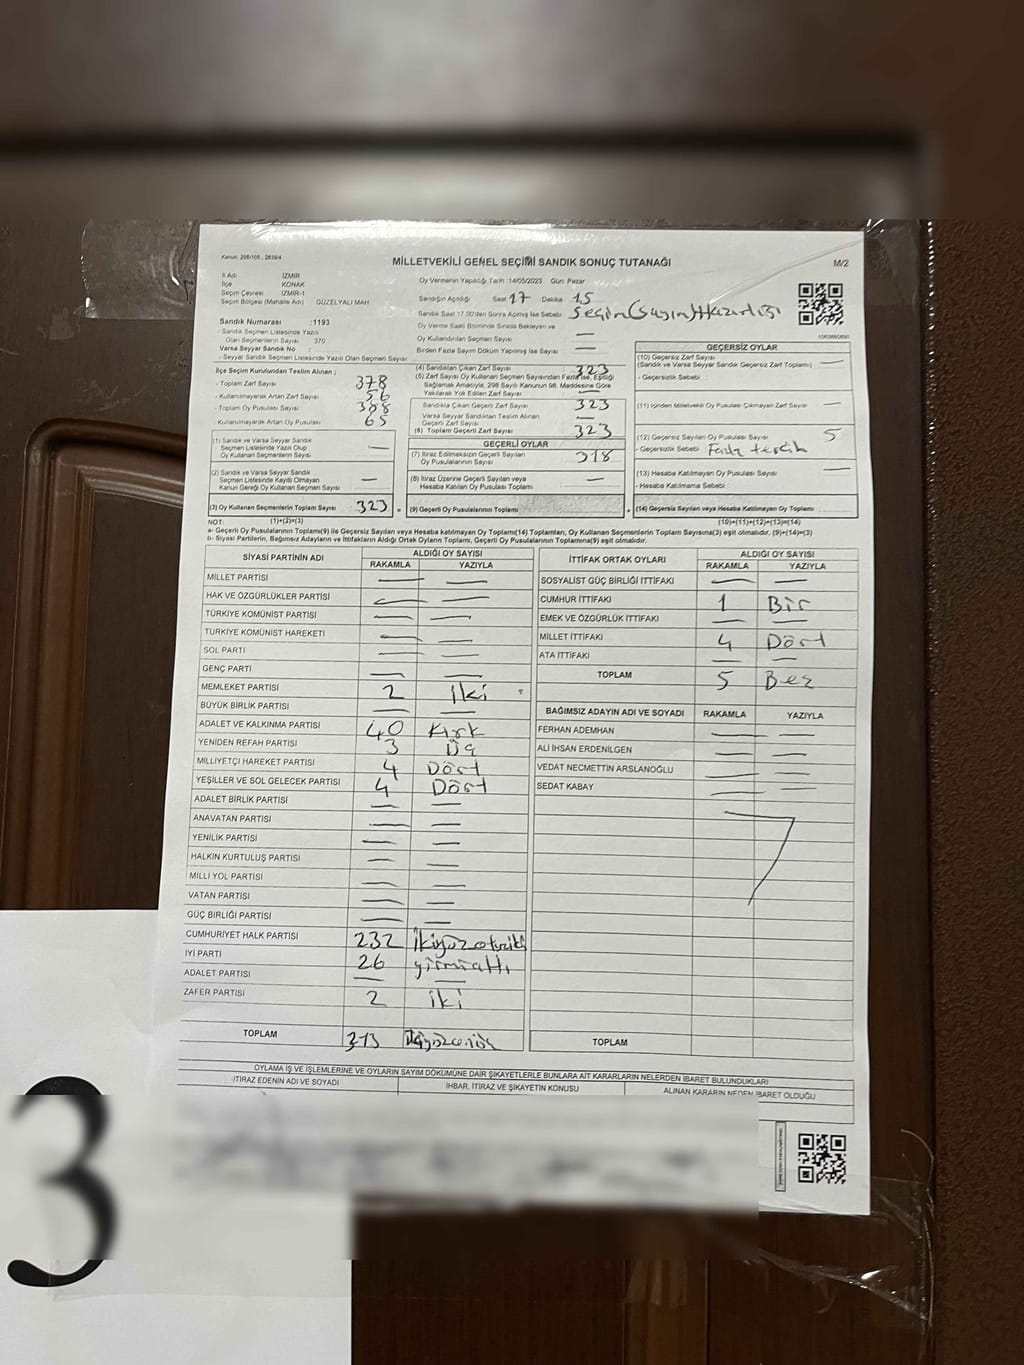 Kanun: 298/105 , 2839/4
MİLLETVEKİLİ GENEL SEÇİMİ SANDIK SONUÇ TUTANAĞI
M/2
İl Adı İZMİR
İlçe KONAK
Seçim Çevresi İZMİR-1
Seçim Bölgesi (Mahalle Adı) GÜZELYALI MAH
Oy Vermenin Yapıldığı Tarih :14/05/2023 Gün: Pazar
Sandığın Açıldığı Saat 17 Dakika 15
Sandık Saat 17.00'den Sonra Açılmış İse Sebebi Seçim (Sayım) Hazırlığı
Oy Verme Saati Bitiminde Sırada Bekleyen ve
Oy Kullandırılan Seçmen Sayısı —
Birden Fazla Sayım Döküm Yapılmış İse Sayısı —
Sandık Numarası :1193
- Sandık Seçmen Listesinde Yazılı
Olan Seçmenlerin Sayısı 370
Varsa Seyyar Sandık No :
- Seyyar Sandık Seçmen Listesinde Yazılı Olan Seçmen Sayısı
İlçe Seçim Kurulundan Teslim Alınan ;
- Toplam Zarf Sayısı 378
- Kullanılmayarak Artan Zarf Sayısı 56
- Toplam Oy Pusulası Sayısı
- Kullanılmayarak Artan Oy Pusulası 65
(1) Sandık ve Varsa Seyyar Sandık
Seçmen Listesinde Yazılı Olup
Oy Kullanan Seçmenlerin Sayısı —
(2) Sandık ve Varsa Seyyar Sandık
Seçmen Listesinde Kayıtlı Olmayan
Kanun Gereği Oy Kullanan Seçmen Sayısı —
(3) Oy Kullanan Seçmenlerin Toplam Sayısı : 323
(1)+(2)=(3)
(4) Sandıktan Çıkan Zarf Sayısı 323
(5) Zarf Sayısı Oy Kullanan Seçmen Sayısından Fazla İse, Eşitliği
Sağlamak Amacıyla, 298 Sayılı Kanunun 98. Maddesine Göre
Yakılarak Yok Edilen Zarf Sayısı —
Sandıkta Çıkan Geçerli Zarf Sayısı 323
Varsa Seyyar Sandıktan Teslim Alınan
Geçerli Zarf Sayısı —
(6) Toplam Geçerli Zarf Sayısı 323
GEÇERLİ OYLAR
(7) İtiraz Edilmeksizin Geçerli Sayılan
Oy Pusulalarının Sayısı 318
(8) İtiraz Üzerine Geçerli Sayılan veya
Hesaba Katılan Oy Pusulası Toplamı —
(9) Geçerli Oy Pusulalarının Toplamı
GEÇERSİZ OYLAR
(10) Geçersiz Zarf Sayısı
(Sandık ve Varsa Seyyar Sandık Geçersiz Zarf Toplamı) —
- Geçersizlik Sebebi
(11) İçinden Milletvekili Oy Pusulası Çıkmayan Zarf Sayısı —
(12) Geçersiz Sayılan Oy Pusulası Sayısı 5
- Geçersizlik Sebebi : Fazla tercih
(13) Hesaba Katılmayan Oy Pusulası Sayısı —
- Hesaba Katılmama Sebebi
(14) Geçersiz Sayılan veya Hesaba Katılmayan Oy Toplamı
(10)+(11)+(12)+(13)=(14)
NOT:
a- Geçerli Oy Pusulalarının Toplamı(9) ile Geçersiz Sayılan veya Hesaba katılmayan Oy Toplamı(14) Toplamları, Oy Kullanan Seçmenlerin Toplam Sayısına(3) eşit olmalıdır. (9)+(14)=(3)
b- Siyasi Partilerin, Bağımsız Adayların ve İttifakların Aldığı Ortak Oyların Toplamı, Geçerli Oy Pusulalarının Toplamına(9) eşit olmalıdır.
SİYASİ PARTİNİN ADI ALDIĞI OY SAYISI
RAKAMLA YAZIYLA
MİLLET PARTİSİ — —
HAK VE ÖZGÜRLÜKLER PARTİSİ — —
TÜRKİYE KOMÜNİST PARTİSİ — —
TÜRKİYE KOMÜNİST HAREKETİ — —
SOL PARTİ — —
GENÇ PARTİ — —
MEMLEKET PARTİSİ 2 İki
BÜYÜK BİRLİK PARTİSİ — —
ADALET VE KALKINMA PARTİSİ 40 Kırk
YENİDEN REFAH PARTİSİ 3 Üç
MİLLİYETÇİ HAREKET PARTİSİ 4 Dört
YEŞİLLER VE SOL GELECEK PARTİSİ 4 Dört
ADALET BİRLİK PARTİSİ — —
ANAVATAN PARTİSİ — —
YENİLİK PARTİSİ — —
HALKIN KURTULUŞ PARTİSİ — —
MİLLİ YOL PARTİSİ — —
VATAN PARTİSİ — —
GÜÇ BİRLİĞİ PARTİSİ — —
CUMHURİYET HALK PARTİSİ 232 İkiyüzotuziki
İYİ PARTİ 26 yirmialtı
ADALET PARTİSİ — —
ZAFER PARTİSİ 2 iki
TOPLAM 313
İTTİFAK ORTAK OYLARI ALDIĞI OY SAYISI
RAKAMLA YAZIYLA
SOSYALİST GÜÇ BİRLİĞİ İTTİFAKI — —
CUMHUR İTTİFAKI 1 Bir
EMEK VE ÖZGÜRLÜK İTTİFAKI — —
MİLLET İTTİFAKI 4 Dört
ATA İTTİFAKI — —
TOPLAM 5 Beş
BAĞIMSIZ ADAYIN ADI VE SOYADI RAKAMLA YAZIYLA
FERHAN ADEMHAN — —
ALİ İHSAN ERDENİLGEN — —
VEDAT NECMETTİN ARSLANOĞLU — —
SEDAT KABAY — —
TOPLAM
OYLAMA İŞ VE İŞLEMLERİNE VE OYLARIN SAYIM DÖKÜMÜNE DAİR ŞİKAYETLERLE BUNLARA AİT KARARLARIN NELERDEN İBARET BULUNDUKLARI
İTİRAZ EDENİN ADI VE SOYADI
İHBAR, İTİRAZ VE ŞİKAYETİN KONUSU
ALINAN KARARIN NEDEN İBARET OLDUĞU
3